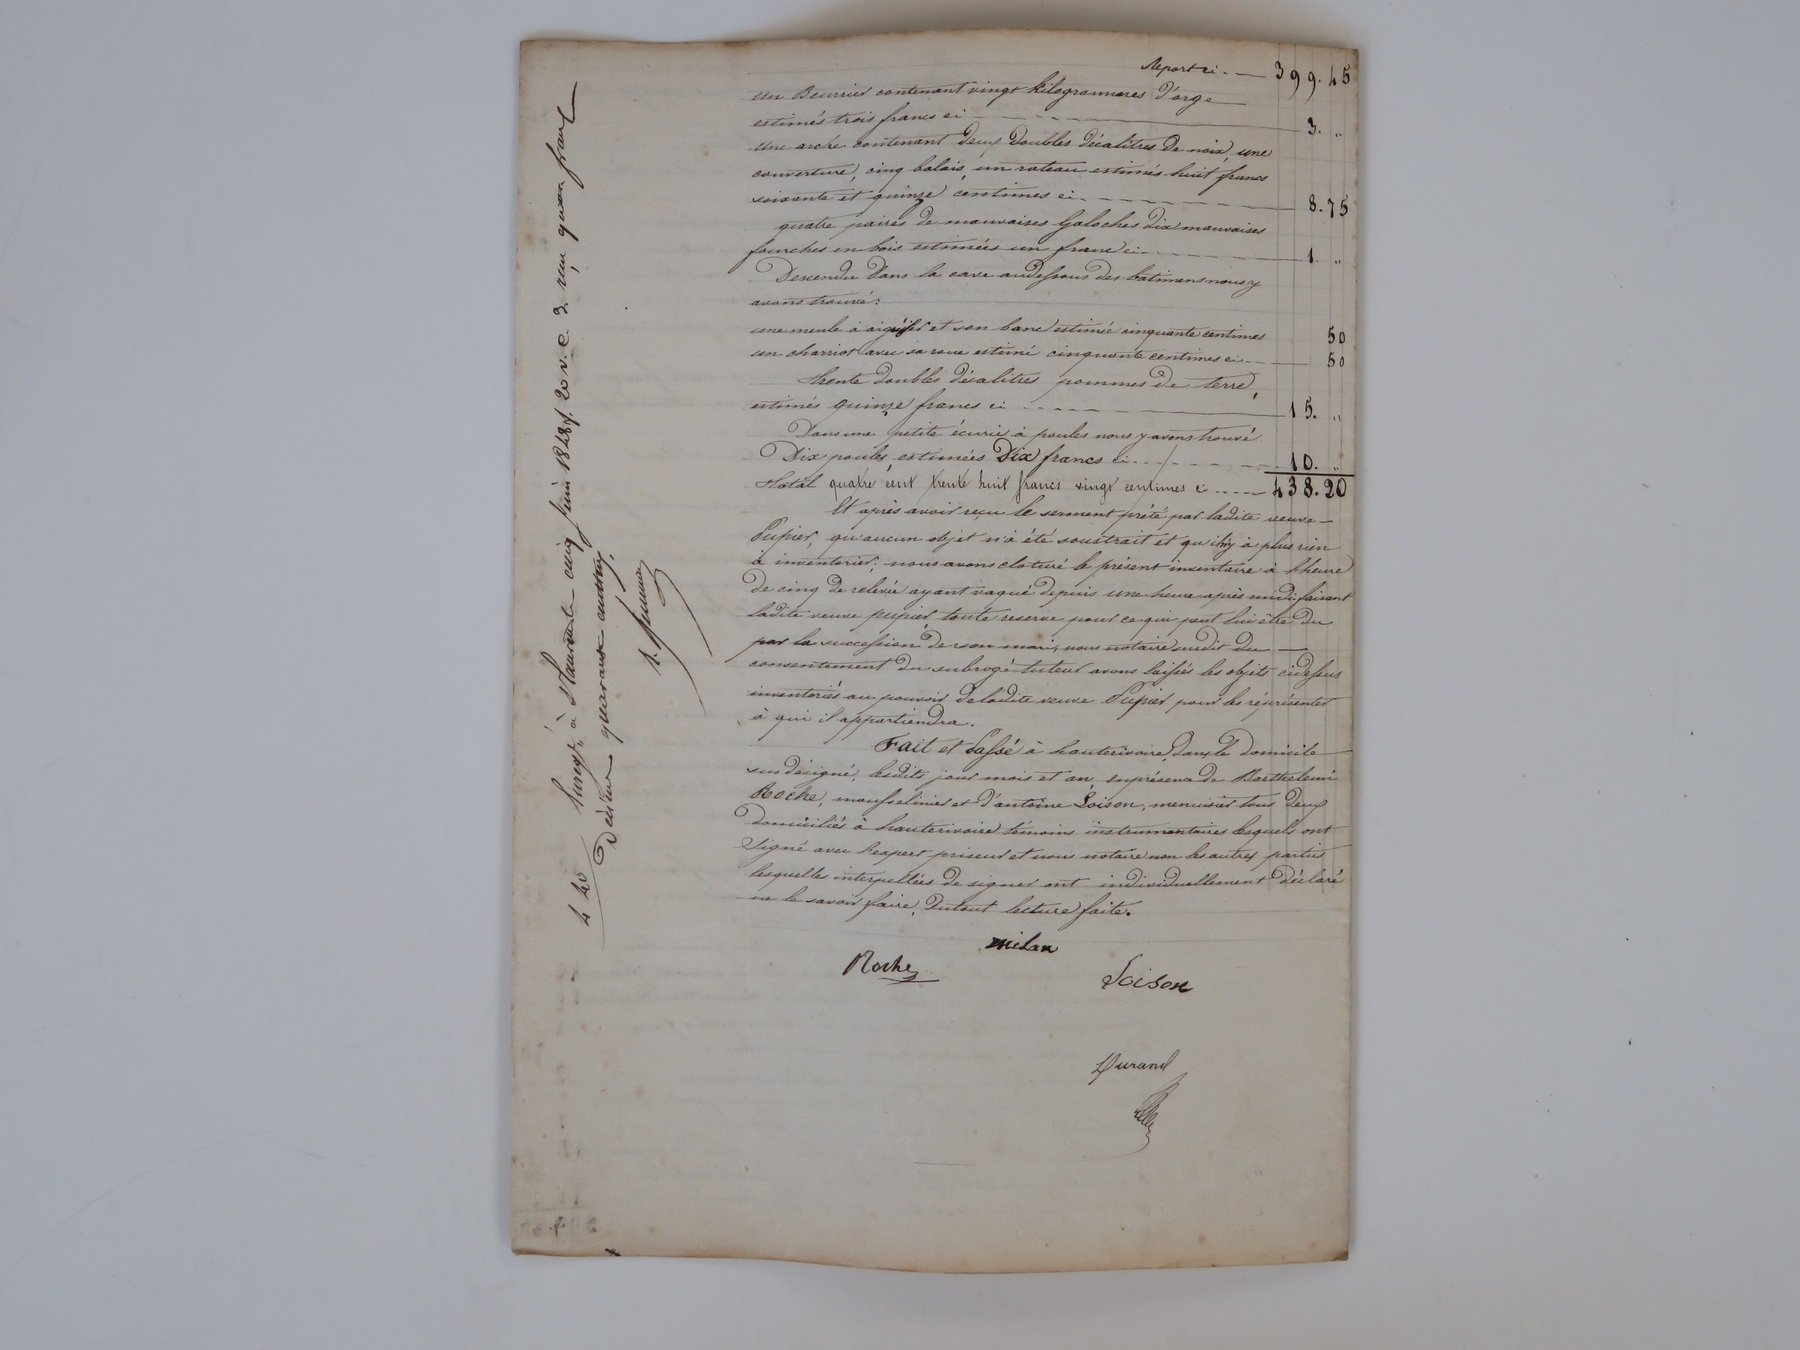 Report ci. — 399.45
un Beurrier contenant vingt kilogrammes d'orge
estimés trois francs ci 3. "
une arche contenant deux doubles décalitres de noix, une
couverture, cinq balais, un rateau estimés huit francs
soixante et quinze centimes ci 8.75
quatre paires de mauvaises Galoches dix mauvaises
fourches en bois estimées un franc ci 1 "
Descendu dans la cave audessous des batimens nous y
avons trouvé:
une meule à aiguiser et son banc estimée cinquante centimes 50
un charriot avec sa roue estimé cinquante centimes ci 50
Trente doubles décalitres pommes de terre,
estimés quinze francs ci 15. "
Dans une petite écurie à poules nous y avons trouvé
Dix poules estimées Dix francs ci 10. "
Total quatre cent trente huit francs vingt centimes ci 438.20
Et après avoir reçu le serment prêté par ladite veuve
Pupier, qu'aucun objet n'a été soustrait et qu'il n'y a plus rien
à inventorier; nous avons cloturé le présent inventaire à l'heure
de cinq de relevée ayant vaqué depuis une heure après midi faisant
ladite veuve pupier toute reserve pour ce qui peut lui être du
par la succession de son mari, nous notaire susdit du
consentement du subrogé-tuteur avons laissés les objets cidessus
inventoriés au pouvoir de ladite veuve Pupier pour les réprésenter
à qui il appartiendra.
Fait et Passé à hauterivoire, dans le domicile
sus désigné, lesdits jour mois et an, en présence de Barthelemi
Roche, mousselinier et d'antoine Loison, menuisier tous deux
domiciliés à hauterivoire témoins instrumentaires lesquels ont
signé avec l'expert priseur et nous notaire non les autres parties
lesquelles interpellées de signer ont individuellement déclaré
ne le savoir faire, du tout lecture faite.
milan
Roche
Loison
Durand
4 40
cinq juin 1848 f. 20 v. c. 3. reçu quatre francs
Décime quarante centimes.